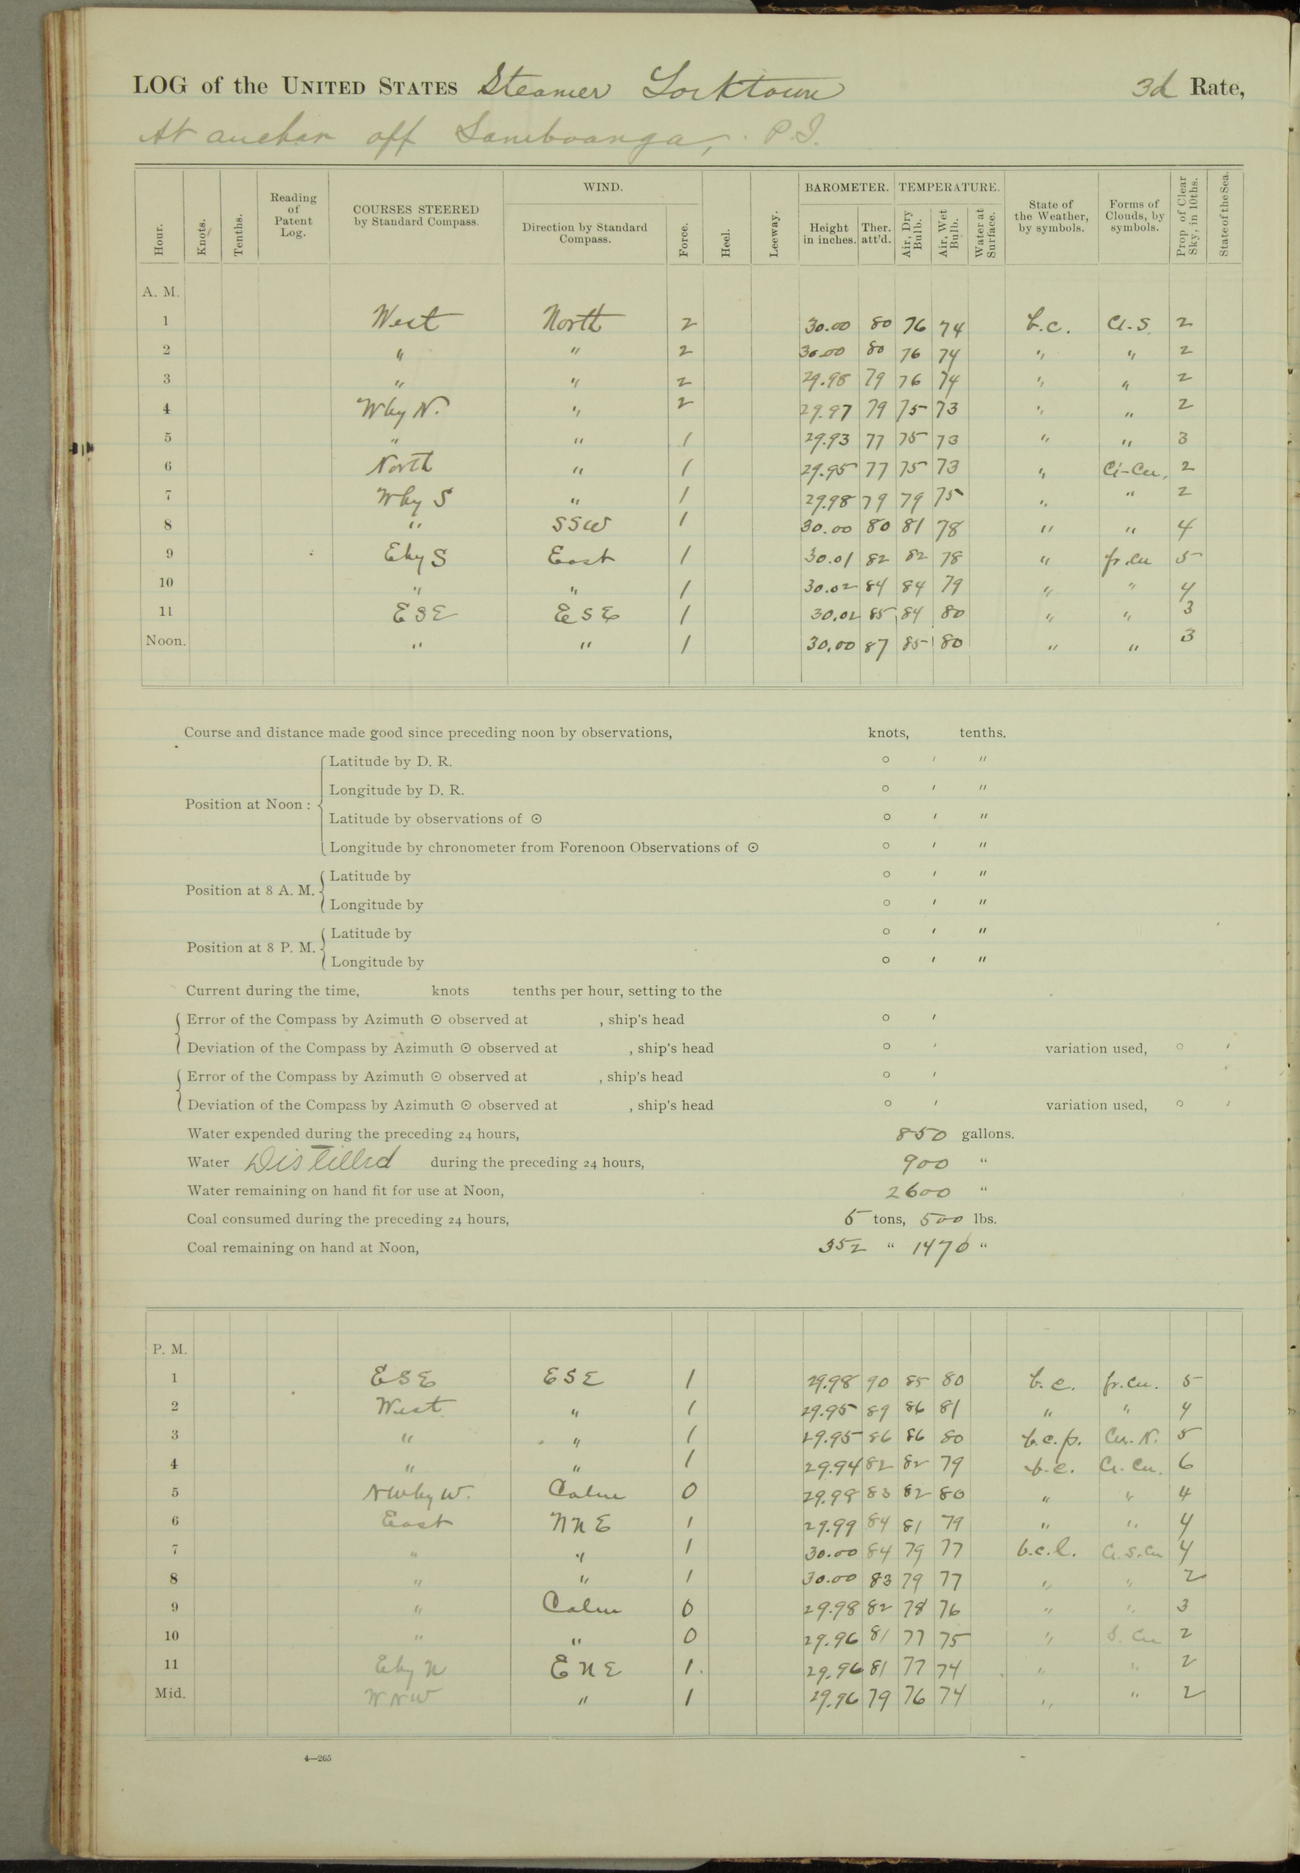 LOG of the UNITED STATES Steamer Yorktown 3d Rate,
At anchor off Samboanga, P.I.
Hour. Knots. Tenths. Reading of Patent Log. COURSES STEERED by Standard Compass. WIND. Direction by Standard Compass. Force. Heel. Leeway. BAROMETER. Height in inches. Ther. att'd. TEMPERATURE. Air, Dry Bulb. Air, Wet Bulb. Water at Surface. State of the Weather, by symbols. Forms of Clouds, by symbols. Prop. of Clear Sky, in 10ths. State of the Sea.
A. M.
1 West North 2 30.00 80 76 74 b.c. Ci.S. 2
2 " " 2 30.00 80 76 74 " " 2
3 " " 2 29.98 79 76 74 " " 2
4 W by N. " 2 29.97 79 75 73 " " 2
5 " " 1 29.93 77 75 73 " " 3
6 North " 1 29.95 77 75 73 " Ci-Cu. 2
7 W by S " 1 29.98 79 79 75 " " 2
8 " SSW 1 30.00 80 81 78 " " 4
9 E by S East 1 30.01 82 82 78 " fr.cu 5
10 " " 1 30.02 84 84 79 " " 4
11 ESE ESE 1 30.02 85 84 80 " " 3
Noon. " " 1 30.00 87 85 80 " " 3
Course and distance made good since preceding noon by observations, knots, tenths.
Position at Noon : Latitude by D. R. ° ′ ″
Longitude by D. R. ° ′ ″
Latitude by observations of ☉ ° ′ ″
Longitude by chronometer from Forenoon Observations of ☉ ° ′ ″
Position at 8 A. M. Latitude by ° ′ ″
Longitude by ° ′ ″
Position at 8 P. M. Latitude by ° ′ ″
Longitude by ° ′ ″
Current during the time, knots tenths per hour, setting to the
Error of the Compass by Azimuth ☉ observed at , ship's head ° ′
Deviation of the Compass by Azimuth ☉ observed at , ship's head ° ′ variation used, ° ′
Error of the Compass by Azimuth ☉ observed at , ship's head ° ′
Deviation of the Compass by Azimuth ☉ observed at , ship's head ° ′ variation used, ° ′
Water expended during the preceding 24 hours, 850 gallons.
Water Distilled during the preceding 24 hours, 900 "
Water remaining on hand fit for use at Noon, 2600 "
Coal consumed during the preceding 24 hours, 5 tons, 500 lbs.
Coal remaining on hand at Noon, 352 " 1470 "
P. M.
1 ESE ESE 1 29.98 90 85 80 b.c. fr.cu. 5
2 West " 1 29.95 89 86 81 " " 4
3 " " 1 29.95 86 86 80 b.c.p. Cu.N. 5
4 " " 1 29.94 82 82 79 b.c. Ci.Cu. 6
5 NW by W. Calm 0 29.98 83 82 80 " " 4
6 East NNE 1 29.99 84 81 79 " " 4
7 " " 1 30.00 84 79 77 b.c.l. Ci.S.Cu 4
8 " " 1 30.00 83 79 77 " " 2
9 " Calm 0 29.98 82 78 76 " " 3
10 " " 0 29.96 81 77 75 " S.Cu 2
11 E by N ENE 1. 29.96 81 77 74 " " 2
Mid. WNW " 1 29.96 79 76 74 " " 2
4—265